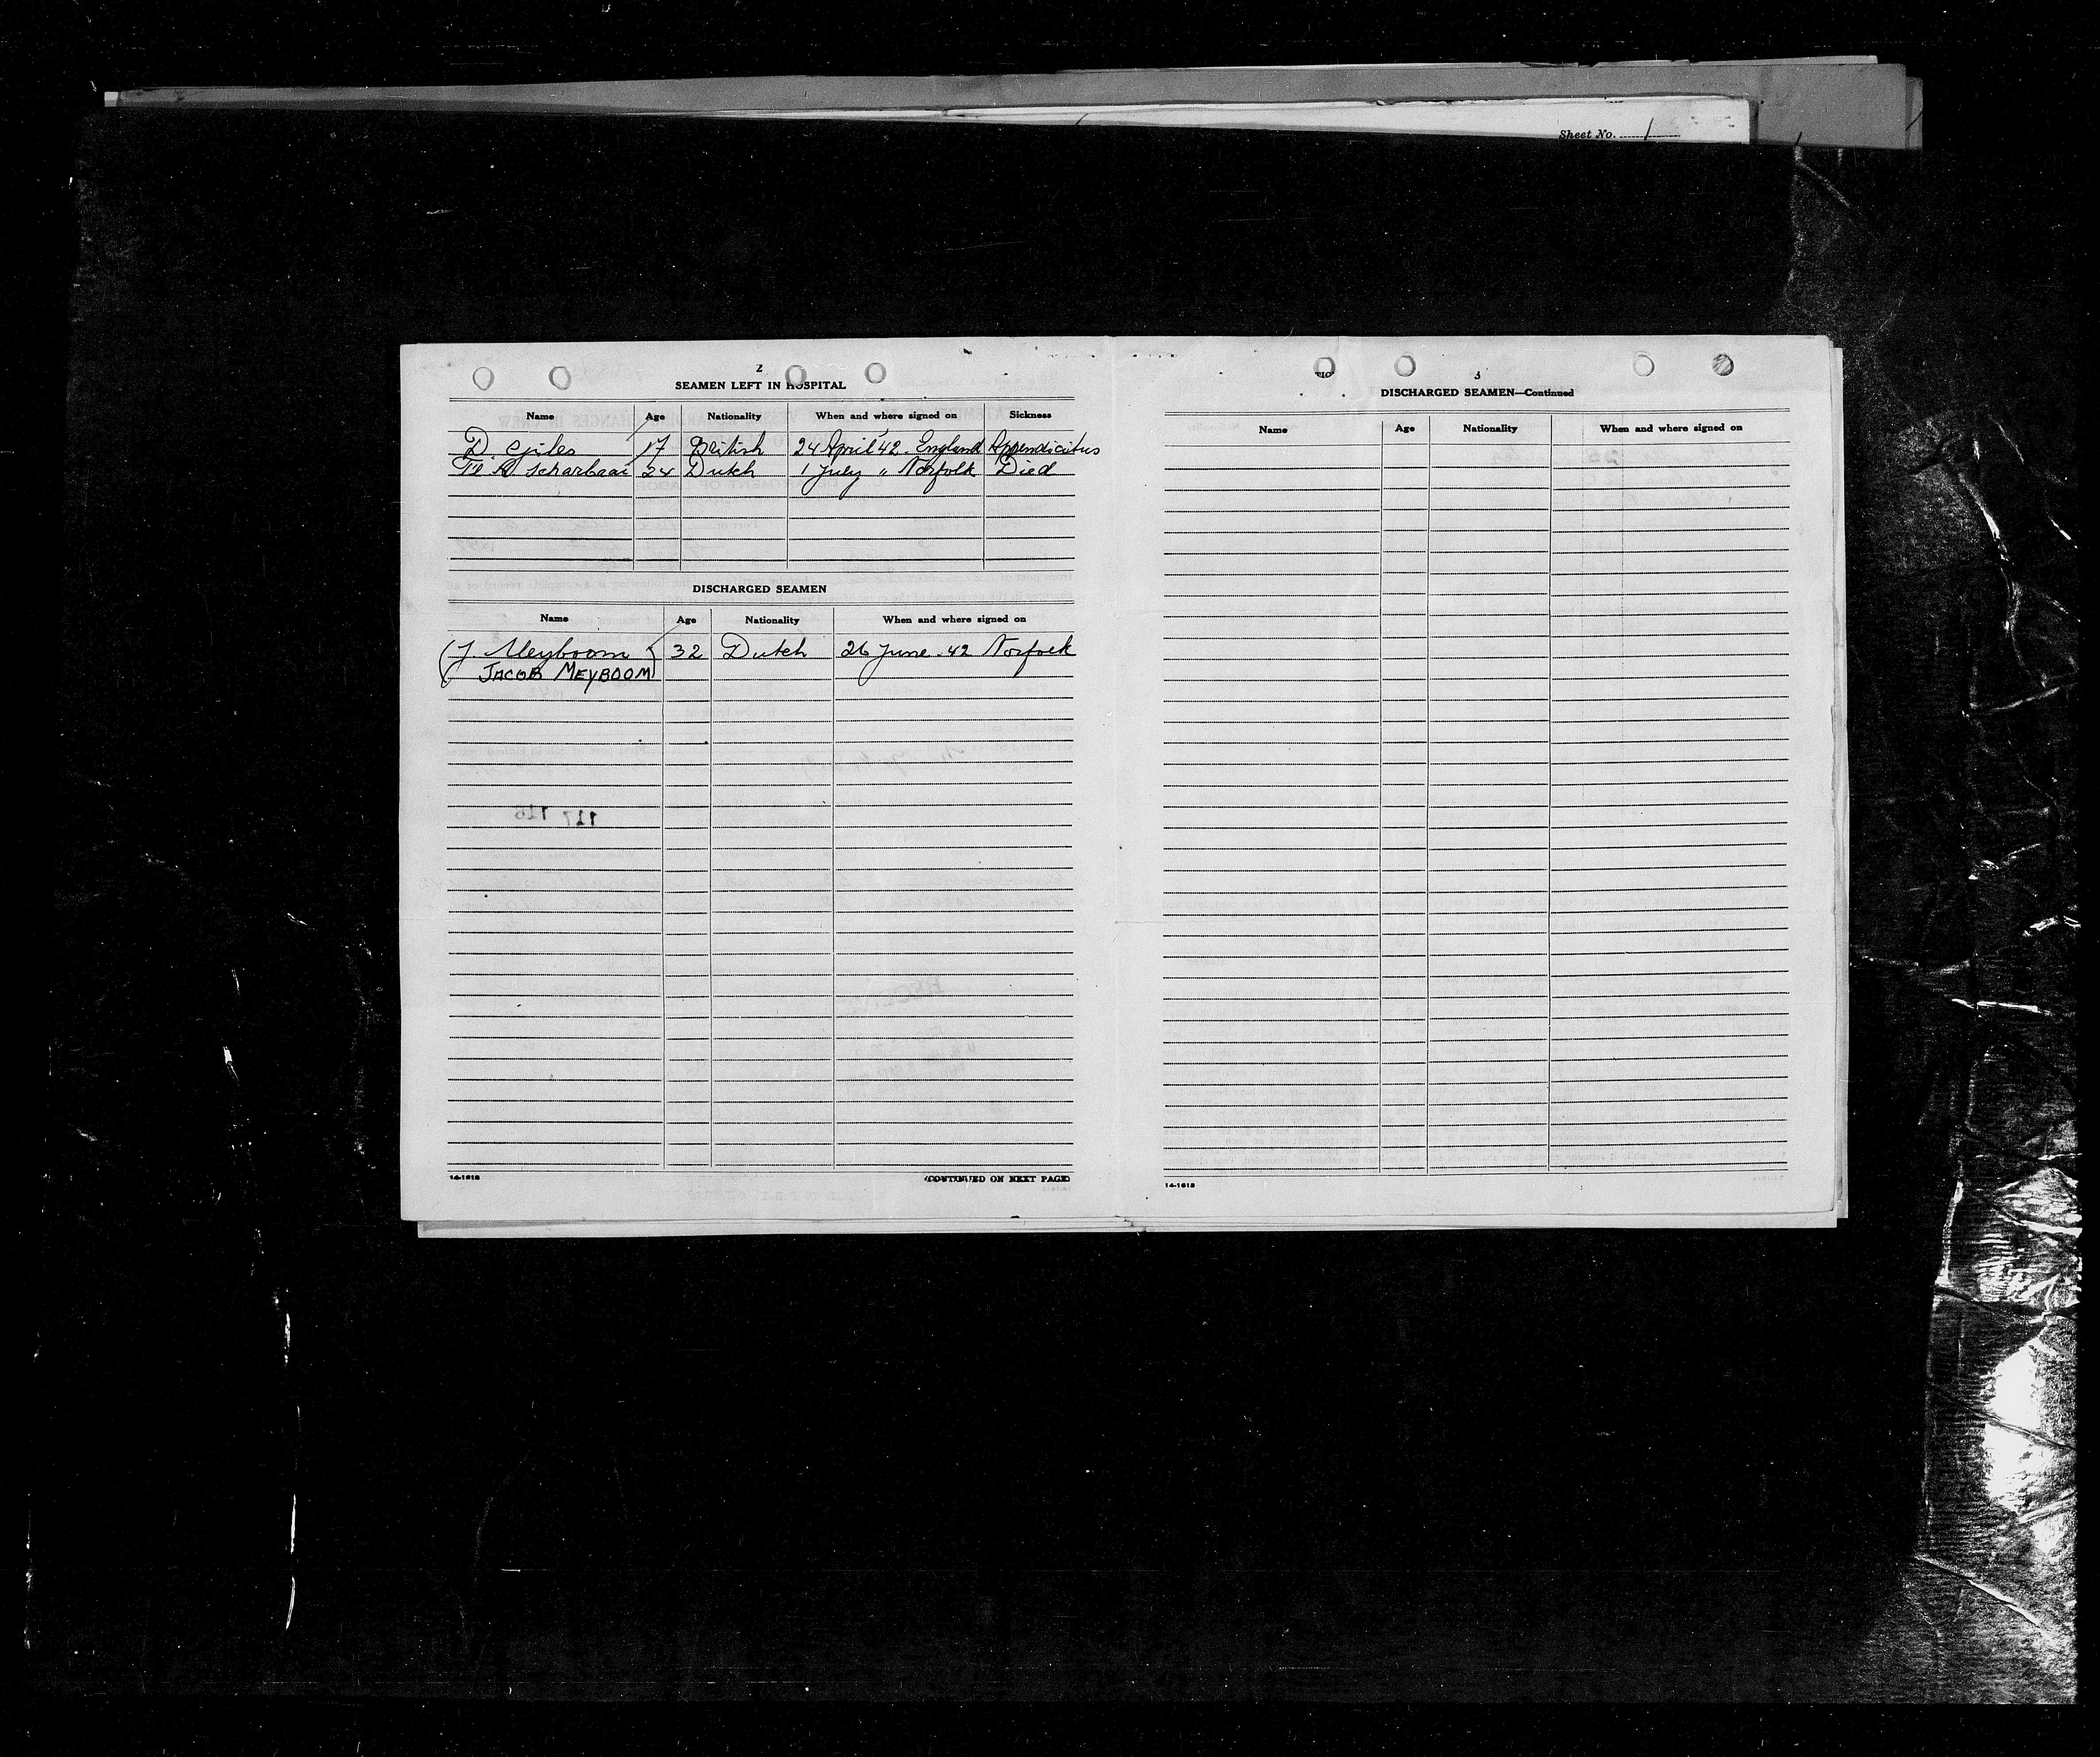 Sheet No. 1
2
SEAMEN LEFT IN HOSPITAL
Name Age Nationality When and where signed on Sickness
D. Giles 17 British 24 April 42. England Appendicitus
A Scharbaai 24 Dutch 1 July " Norfolk Died
DISCHARGED SEAMEN
Name Age Nationality When and where signed on
(J. Meyboom 32 Dutch 26 June - 42 Norfolk
JACOB MEYBOOM)
117 116
14-1618 (CONTINUED ON NEXT PAGE)
3
DISCHARGED SEAMEN—Continued
Name Age Nationality When and where signed on
14-1618